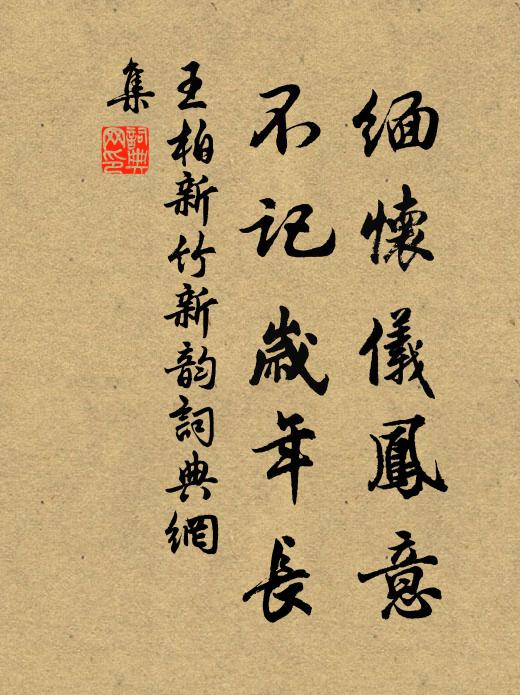 緬懷儀鳳意
不記歲年長
王柏新竹新韵詞典網
集
詞典網印